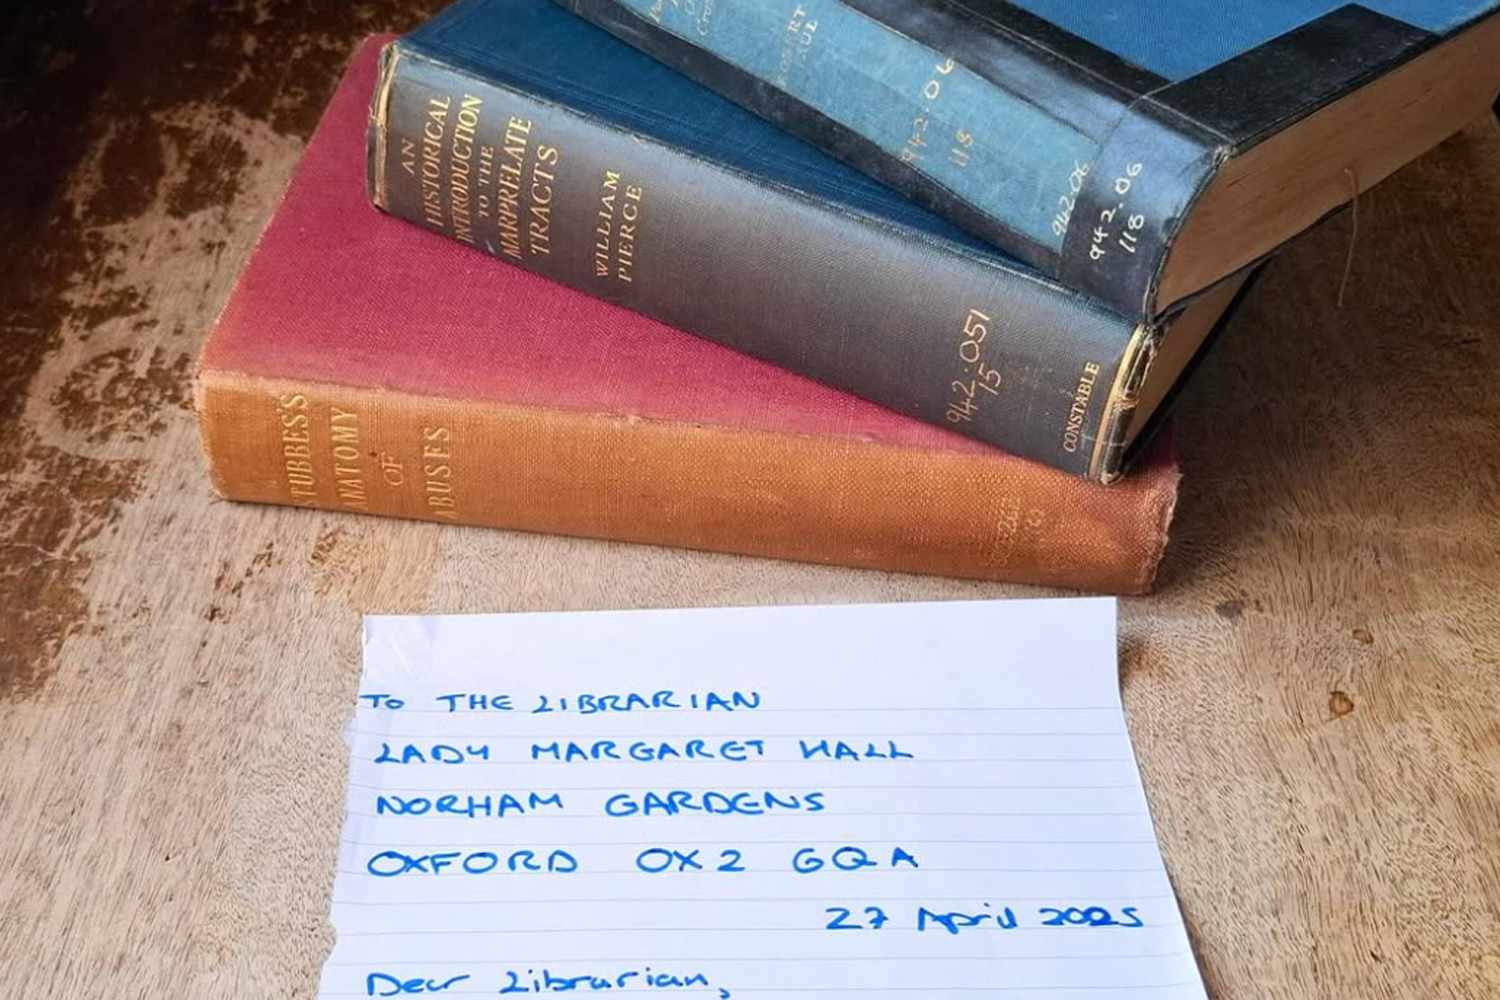 942.06
118
942.06
942.06
118
AN
HISTORICAL
INTRODUCTION
TO THE
MARPRELATE
TRACTS
WILLIAM
PIERCE
942.051
15
CONSTABLE
STUBBES'S
ANATOMY
OF
ABUSES
To THE LIBRARIAN
LADY MARGARET HALL
NORHAM GARDENS
OXFORD OX2 6QA
27 April 2025
Dear Librarian,